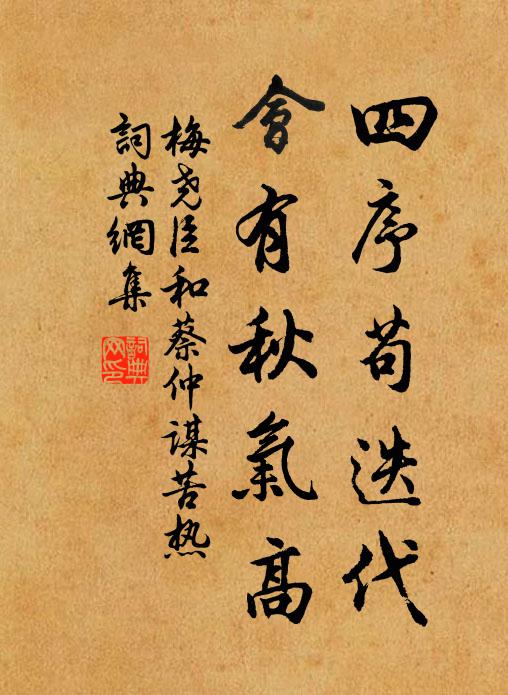 四序苟迭代
會有秋氣高
梅尧臣和蔡仲谋苦热
詞典網集
詞典网印